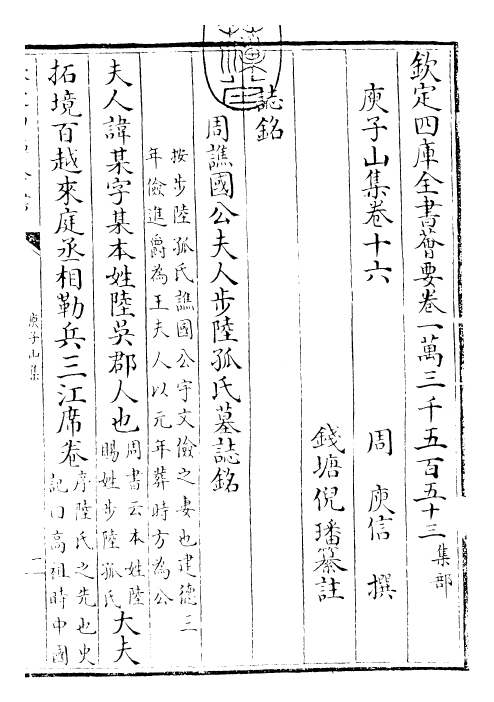 欽定四庫全書薈要卷一萬三千五百五十三集部
庾子山集卷十六
周 庾信 撰
錢塘倪璠纂註
誌銘
周譙國公夫人步陸孤氏墓誌銘
按步陸孤氏譙國公宇文儉之妻也建德三
年儉進爵為王夫人以元年葬時方為公
夫人諱某字某本姓陸吳郡人也
周書云本姓陸
賜姓步陸孤氏
大夫
拓境百越來庭丞相勒兵三江席卷
序陸氏之先也史
記曰高祖時中國
庾子山集
一